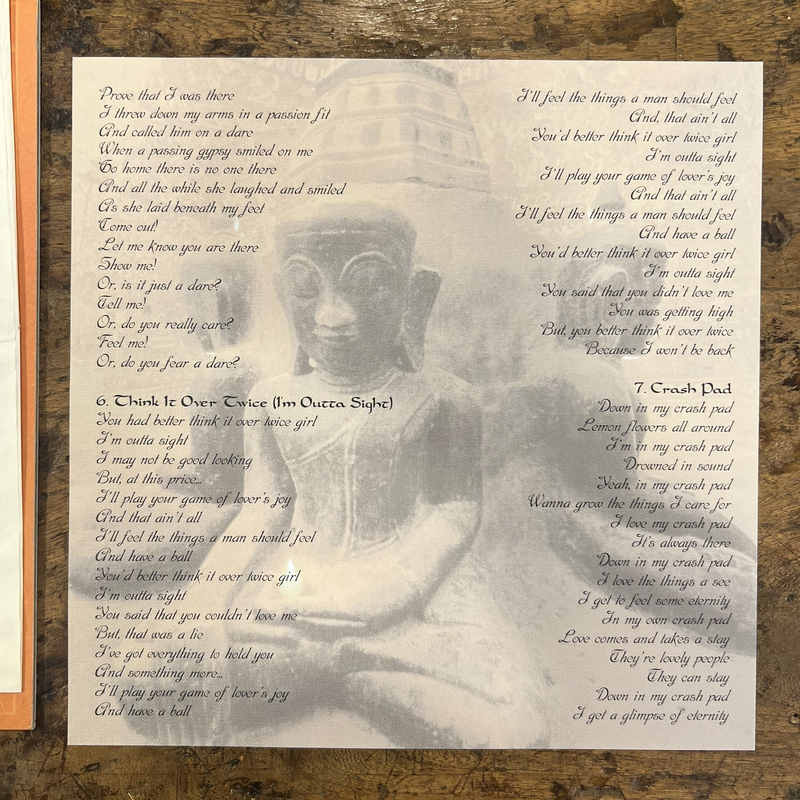 Prove that I was there
I threw down my arms in a passion fit
And called him on a dare
When a passing gypsy smiled on me
To home there is no one there
And all the while she laughed and smiled
As she laid beneath my feet
Come out!
Let me know you are there
Show me!
Or, is it just a dare?
Tell me!
Or, do you really care?
Feel me!
Or, do you fear a dare?
6. Think It Over Twice (I'm Outta Sight)
You had better think it over twice girl
I'm outta sight
I may not be good looking
But, at this price...
I'll play your game of lover's joy
And that ain't all
I'll feel the things a man should feel
And have a ball
You'd better think it over twice girl
I'm outta sight
You said that you couldn't love me
But, that was a lie
I've got everything to hold you
And something more...
I'll play your game of lover's joy
And have a ball
I'll feel the things a man should feel
And, that ain't all
You'd better think it over twice girl
I'm outta sight
I'll play your game of lover's joy
And that ain't all
I'll feel the things a man should feel
And have a ball
You'd better think it over twice girl
I'm outta sight
You said that you didn't love me
You was getting high
But, you better think it over twice
Because I won't be back
7. Crash Pad
Down in my crash pad
Lemon flowers all around
I'm in my crash pad
Drowned in sound
Yeah, in my crash pad
Wanna grow the things I care for
I love my crash pad
It's always there
Down in my crash pad
I love the things a see
I get to feel some eternity
In my own crash pad
Love comes and takes a stay
They're lovely people
They can stay
Down in my crash pad
I get a glimpse of eternity